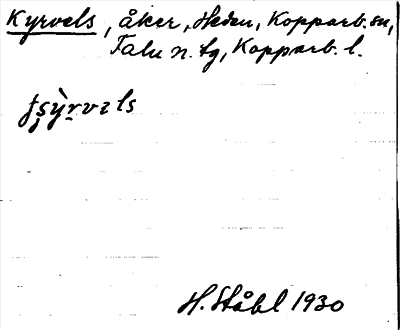 Kyrvels, åker, Heden, Kopparb. sn,
Falu n. tg, Kopparb. l.
H. Ståhl 1930